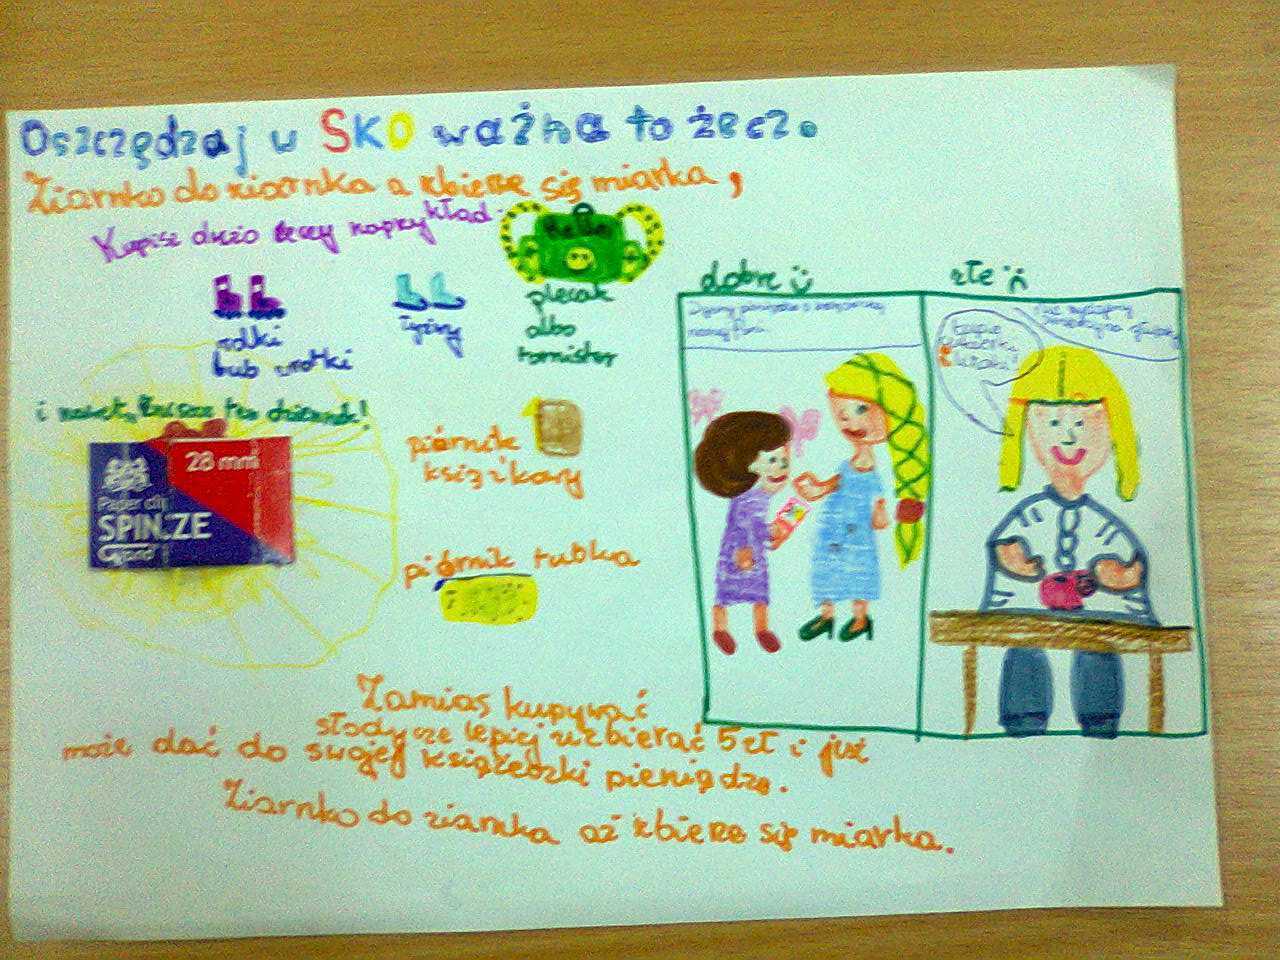 Oszczędzaj w SKO ważna to żecz.
Ziarnko do ziarnka a zbierze się miarka,
Kupisz dużo rzeczy naprzykład.
Hello
rolki
bub wrotki
łyżwy
plecak
albo
tornister
i nawet
ten dziennik!
28 mm
Paper clip
SPINACZE
Grand
piórnik
książkowy
piórnik tubka
dobre
złe
kupię
Zamias kupywać
słodycze lepiej uzbierać 5 zł i już
może dać do swojej książeczki pieniądze.
Ziarnko do ziarnka aż zbierze się miarka.